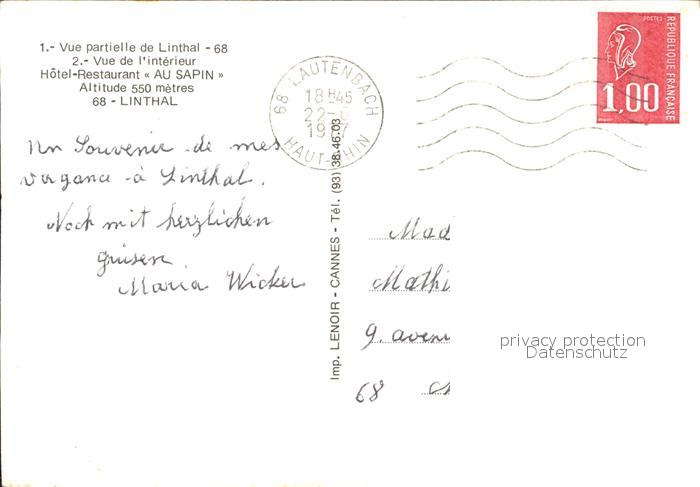 1.- Vue partielle de Linthal - 68
2.- Vue de l'intérieur
Hôtel-Restaurant « AU SAPIN »
Altitude 550 mètres
68 - LINTHAL
68 LAUTENBACH
18 H45
22-
19 7
HAUT-RHIN
POSTES
RÉPUBLIQUE FRANÇAISE
1,00
un Souvenir de mes
vagance à Linthal.
Noch mit herzlichen
grüsen
Maria Wicker
Imp. LENOIR - CANNES - Tél. (93) 38.46.03
Mad
Mathi
9. avenu
68
privacy protection
Datenschutz